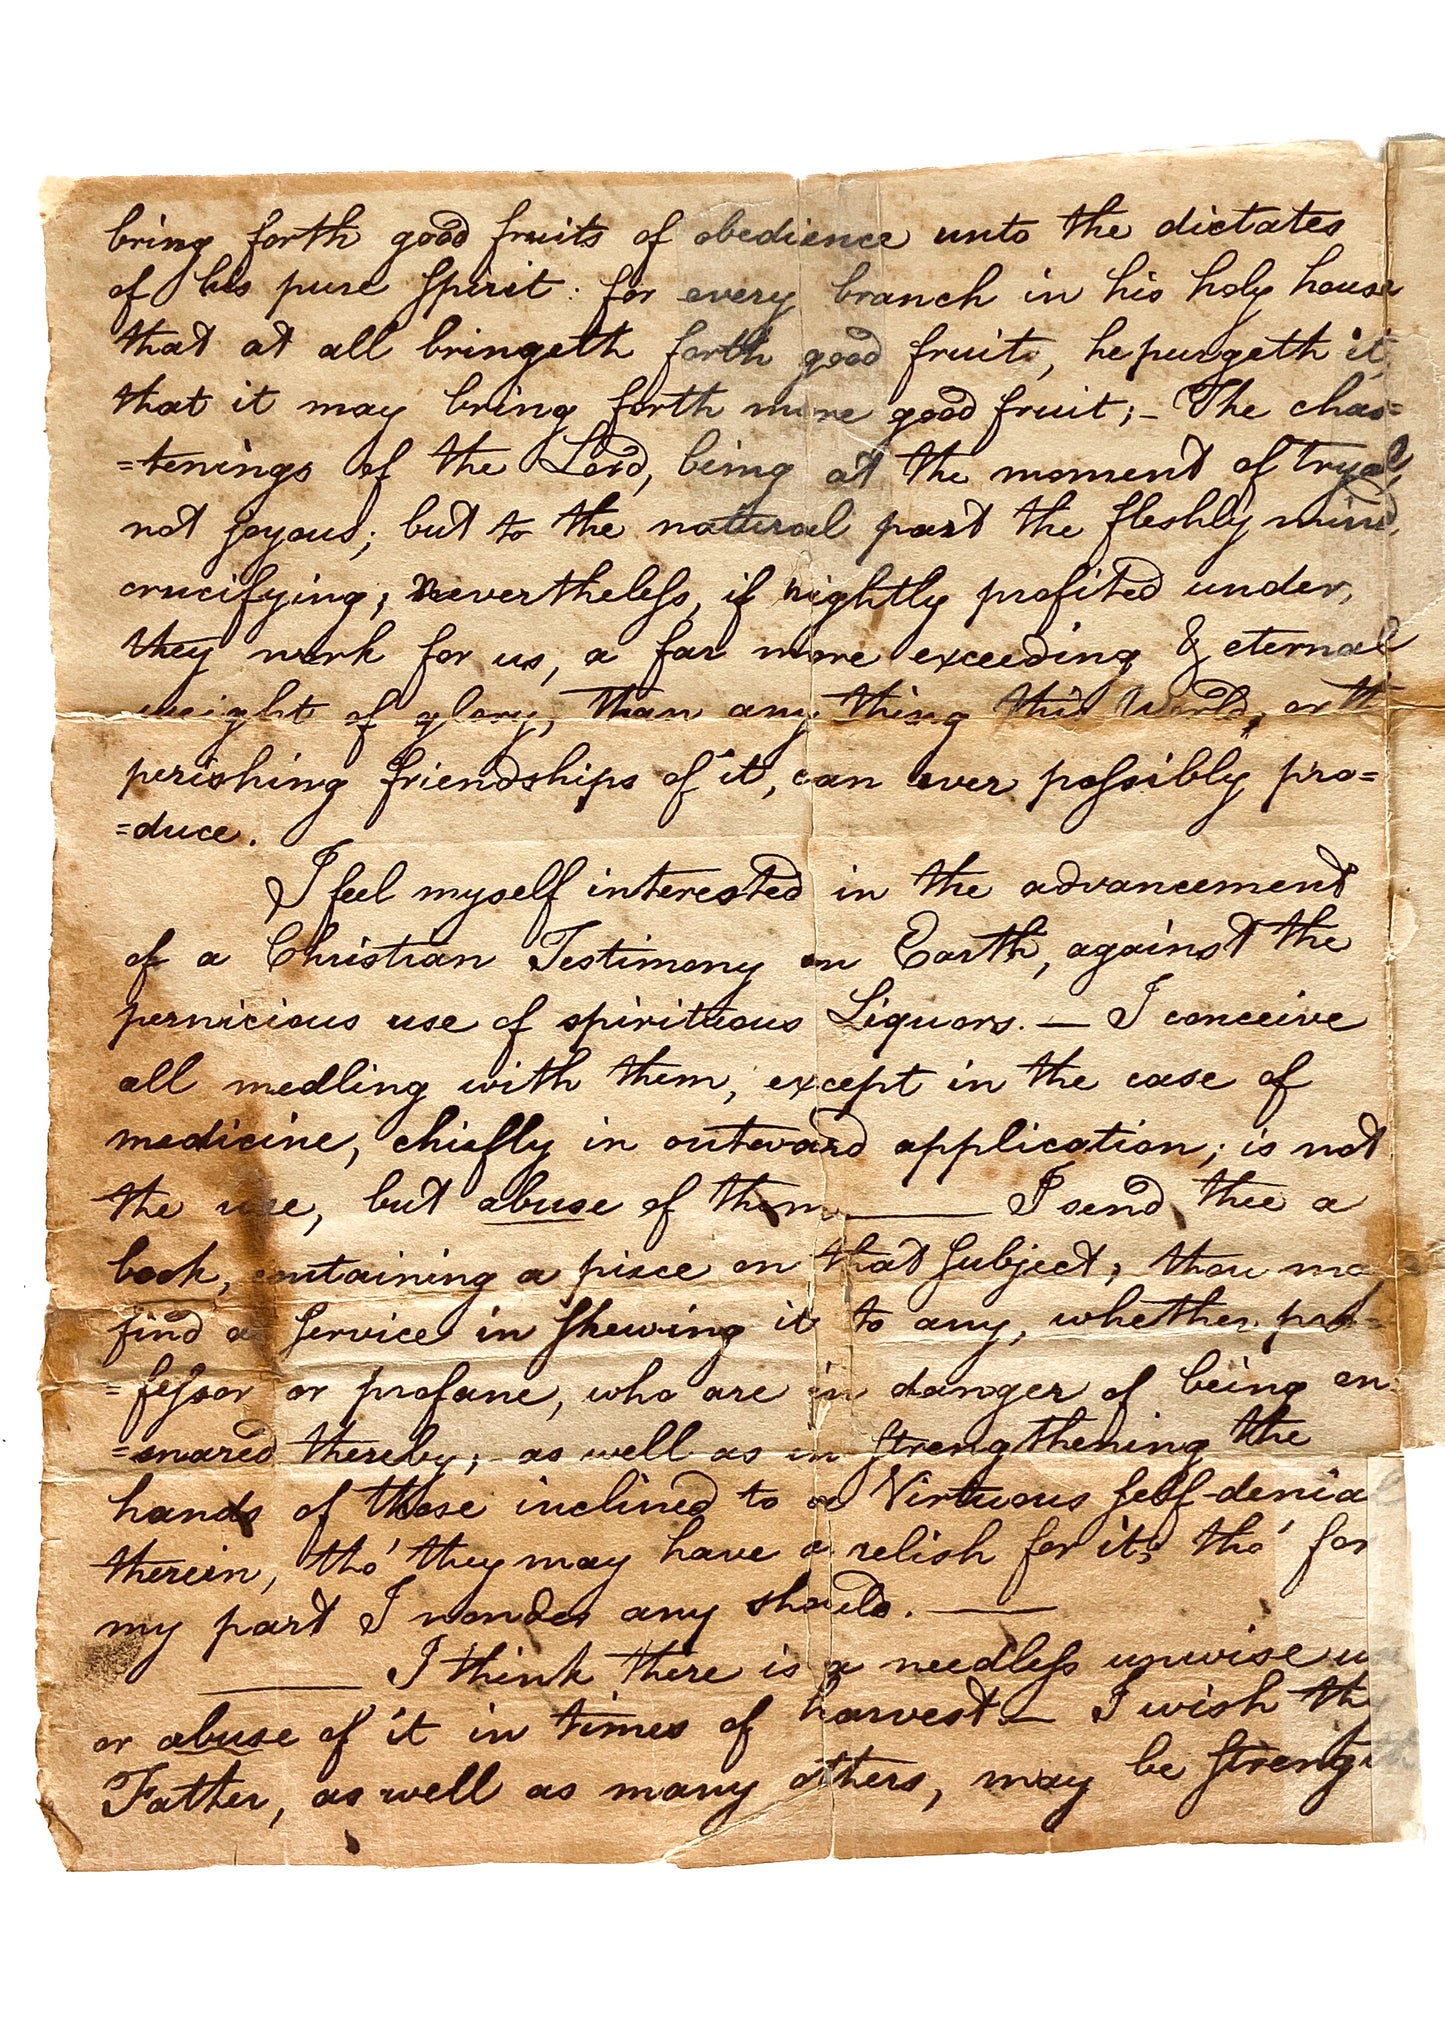 bring forth good fruits of obedience unto the dictates
of his pure Spirit: for every branch in his holy house
that at all bringeth forth good fruit, he purgeth it,
that it may bring forth more good fruit;– The chas=
=tenings of the Lord, being at the moment of tryal,
not joyous; but to the natural part the fleshly mind,
crucifying; Nevertheless, if rightly profited under,
they work for us, a far more exceeding & eternal
weight of glory, than any thing this World, or the
perishing friendships of it, can ever possibly pro=
=duce.
I feel myself interested in the advancement
of a Christian Testimony on Earth, against the
pernicious use of spirituous Liquors. — I conceive
all medling with them, except in the case of
medicine, chiefly in outward application; is not
the use, but abuse of them ——— I send thee a
book, containing a piece on that Subject; thou may
find a Service in Shewing it to any, whether pro=
=fessor or profane, who are in danger of being en=
=snared thereby; as well as in Strengthening the
hands of those inclined to a Virtuous Self-denial
therein, tho' they may have a relish for it; tho' for
my part I wonder any should. ———
——— I think there is a needless unwise use
or abuse of it in times of harvest.— I wish thy
Father, as well as many others, may be Strength